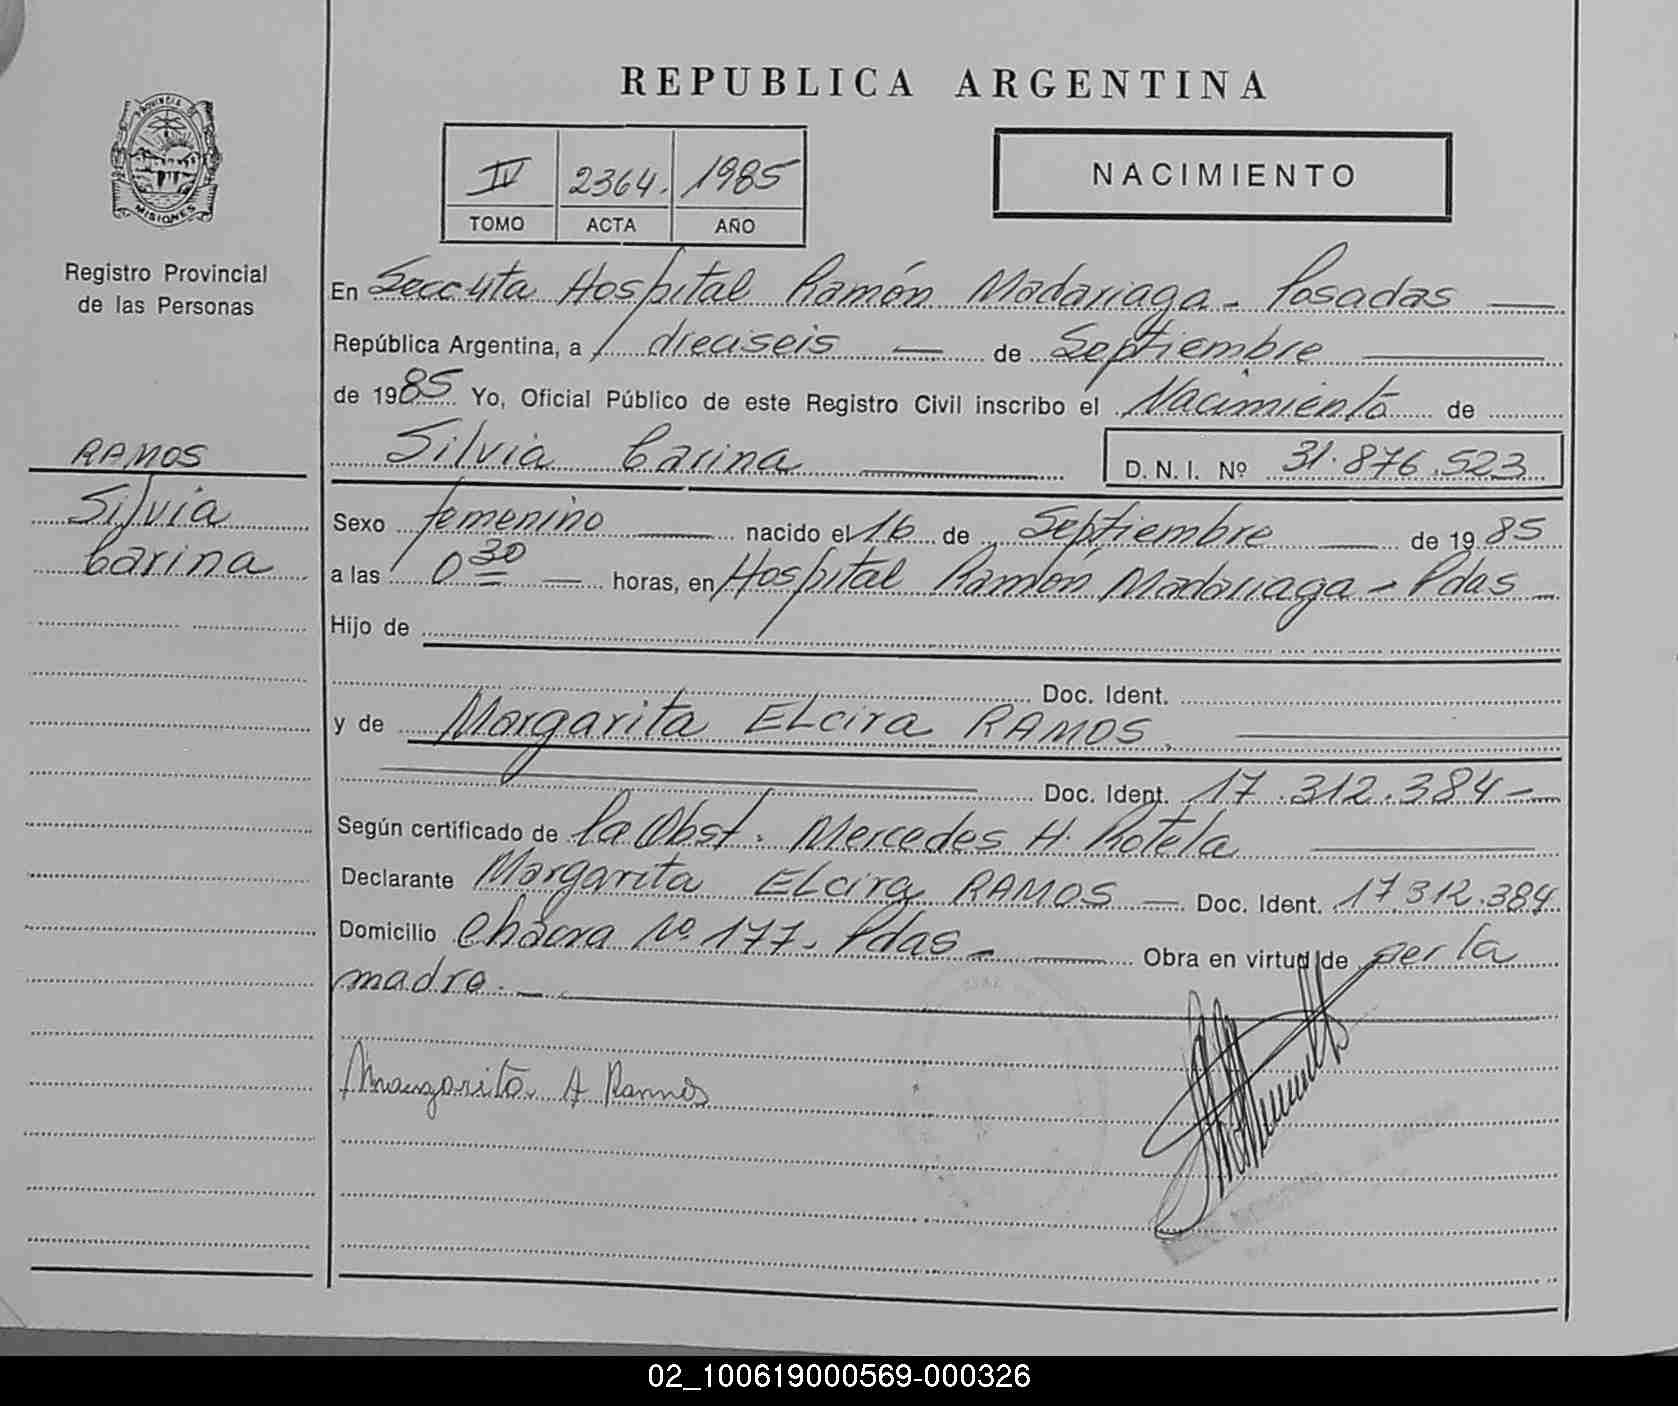 REPUBLICA ARGENTINA
PROVINCIA DE
MISIONES
Registro Provincial
de las Personas
IV 2364. 1985
TOMO ACTA AÑO
NACIMIENTO
En Secc 4ta Hospital Ramón Madariaga - Posadas
República Argentina, a dieciseis de Septiembre
de 1985 Yo, Oficial Público de este Registro Civil inscribo el Nacimiento de
Silvia Carina D.N.I. Nº 31.876.523
RAMOS
Silvia
Carina
Sexo femenino nacido el 16 de Septiembre de 1985
a las 0 30 horas, en Hospital Ramón Madariaga - Pdas
Hijo de
Doc. Ident.
y de Margarita ELcira RAMOS.
Doc. Ident. 17.312.384-
Según certificado de la Obst. Mercedes H. Rotela
Declarante Margarita ELcira RAMOS - Doc. Ident. 17.312.384
Domicilio Chacra Nº 177. Pdas - Obra en virtud de ser la
madre.
Margarita A Ramos
02_100619000569-000326